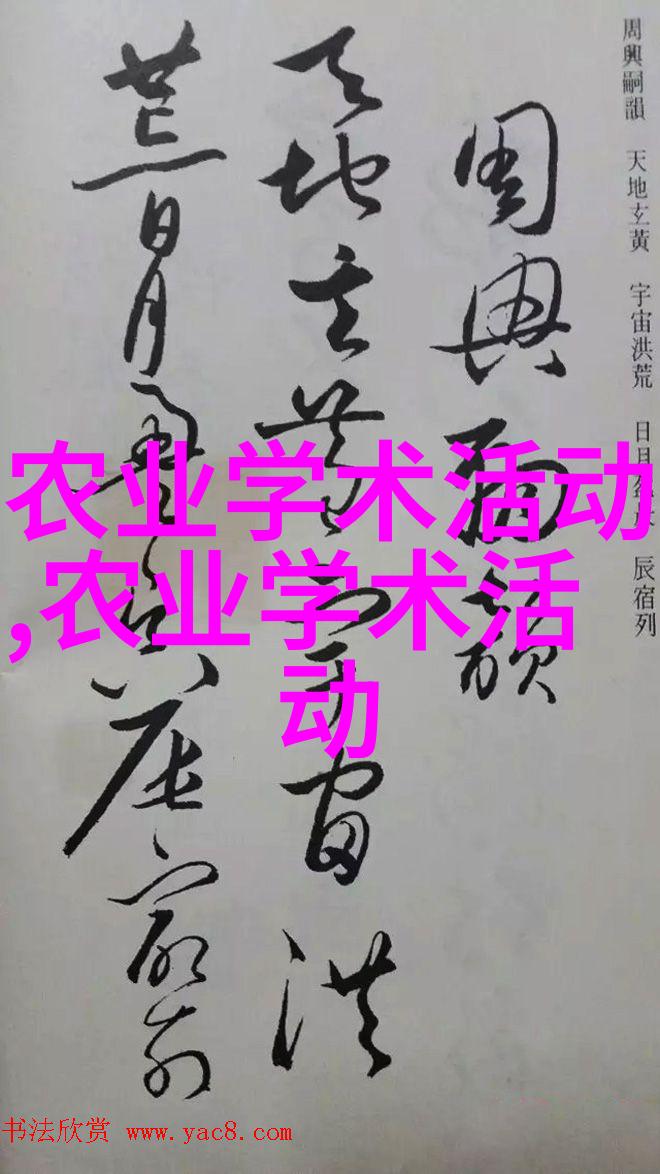 周興嗣韻 天地玄黃 宇宙洪荒 日月盈昃 辰宿列
周興嗣韻
天地玄黃宇宙洪
荒日月盈昃辰宿列
农业学术活动
,农业学术活
动
书法欣赏 www.yac8.com